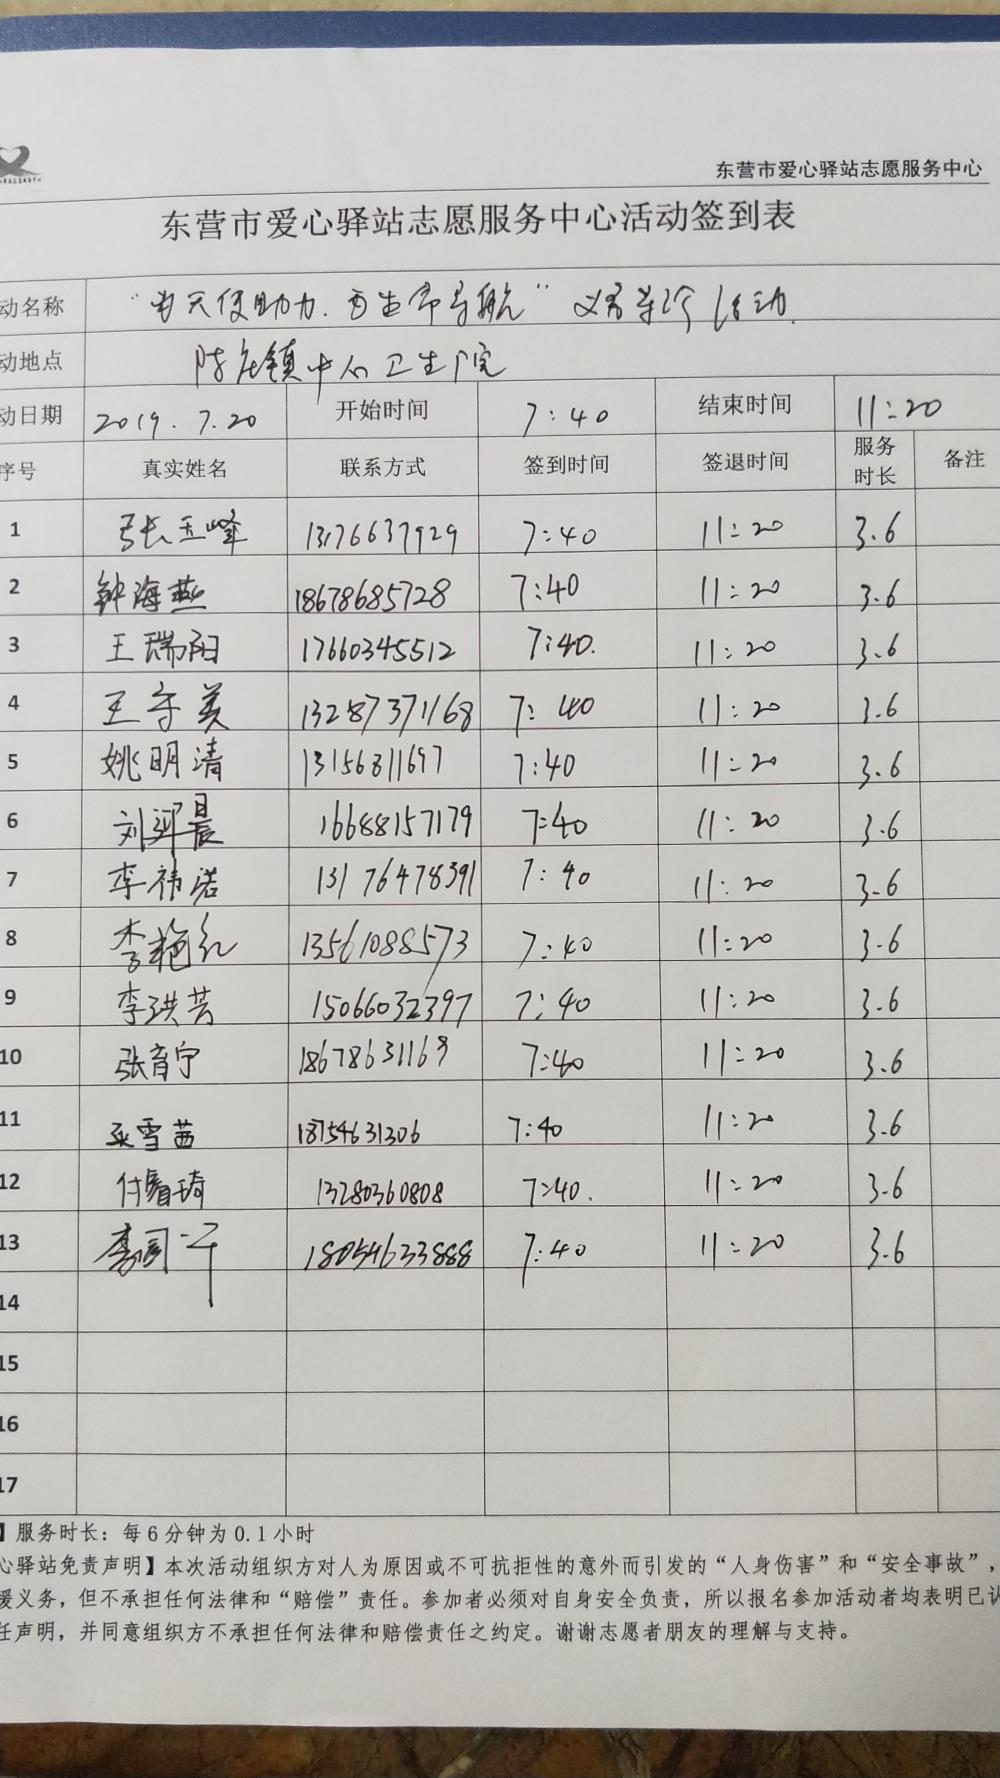 东营市爱心驿站志愿服务中心
东营市爱心驿站志愿服务中心活动签到表
动名称 "为天使助力.为生命导航" 义务导诊活动.
动地点 陈庄镇中心卫生院
动日期 2019.7.20 开始时间 7:40 结束时间 11:20
序号 真实姓名 联系方式 签到时间 签退时间 服务时长 备注
1 张玉峰 13176637929 7:40 11:20 3.6
2 钟海燕 18678685728 7:40 11:20 3.6
3 王瑞阳 17660345512 7:40. 11:20 3.6
4 王守美 13287371168 7:40 11:20 3.6
5 姚明清 13156811697 7:40 11:20 3.6
6 刘 晨 16688157179 7:40 11:20 3.6
7 李祎诺 13176478391 7:40 11:20 3.6
8 李艳红 13561088573 7:40 11:20 3.6
9 李洪芸 15066032397 7:40 11:20 3.6
10 张育宁 18678631169 7:40 11:20 3.6
11 雪茜 18754631306 7:40 11:20 3.6
12 付 琦 13280360808 7:40. 11:20 3.6
13 李 18054633888 7:40 11:20 3.6
14
15
16
17
】服务时长：每6分钟为0.1小时
心驿站免责声明】本次活动组织方对人为原因或不可抗拒性的意外而引发的“人身伤害”和“安全事故”，
援义务，但不承担任何法律和“赔偿”责任。参加者必须对自身安全负责，所以报名参加活动者均表明已认
任声明，并同意组织方不承担任何法律和赔偿责任之约定。谢谢志愿者朋友的理解与支持。